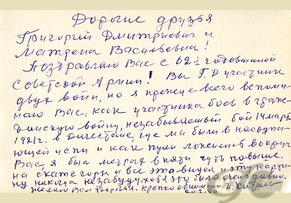 Дорогие друзья
Григорий Дмитриевич и
Матрена Васильевна!
Поздравляю Вас с 62й годовщиной
Советской Армии! Вы Г.Д участник
двух войн, но я прежде всего вспоми-
наю Вас, как участника боя в граж-
данскую войну, незабываемый бой 14 марта
1921г. в Дагестане, где мы были в наступаю-
щей цепи и как пули ложились вокруг
Вас, я был метрах в пяти чуть повыше
на скате горы и все это видел и эту карти-
ну никогда не забуду, хотя это было очень давно.
Желаю Вам крепко обнимаю